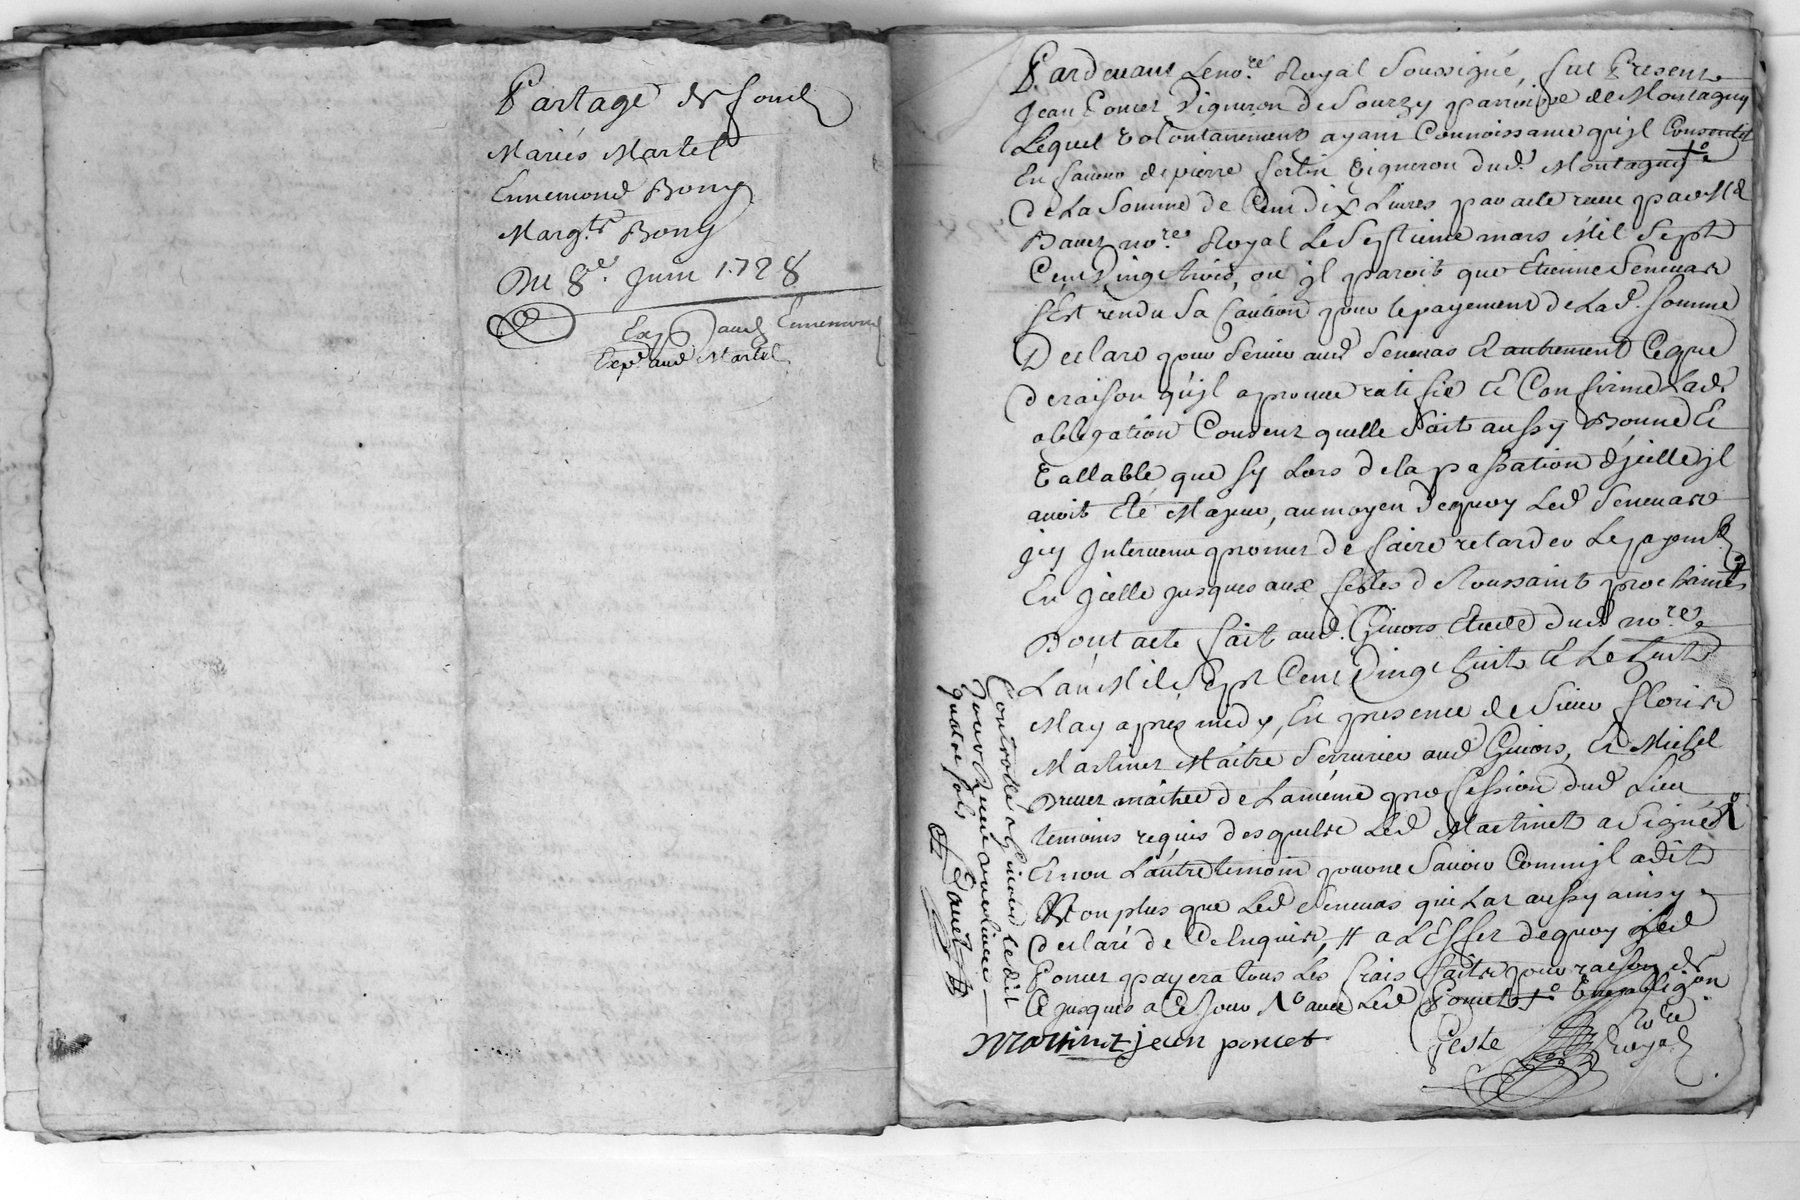 Partage de fond
Mariés Martel
Ennemond Bony
Marg.te Bony
Du 8e. Juin 1728
Exp aud Ennemond
Expé aud Martel
Pardevant Le no.re Royal Soussigné, fut Present
Jean Poncet Vigneron de Sourzy parroisse de Montagny
Lequel volontairement ayant Connoissance qu'jl Consentit
En faveur de pierre fertin Vigneron dud. Montagny
De La Somme de Cent dix Livres par acte receu par Me
no.re Royal Le Septieme mars Mil Sept
Cent Vingt trois, ou jl paroit que Etienne Seneuas
s'Est rendu Sa Caution pour le payement de Lad. Somme
Declare pour Servir aud Seneuas Et autrement Ce que
de raison qu'jl aprouue ratifie Et Confirme Lad.
obligation Consent quelle Soit aussy Bonne Et
Vallable que sy Lors de la passation d'jcelle jl
avoit Eté Majeur, au moyen dequoy Led Seneuas
jcy Jntervenu promet de faire retarder Le payemt
En jcelle jusques aux festes de Toussaint prochaines
Dont acte fait aud. Givors Etude dud no.re
L'an Mil Sept Cent Vingt huit Et Le huit
May apres midy, En presence de Sieur floris
Martinet Maitre Serrurier aud Givors, Et Michel
maitre de La meme profession dud Lieu
temoins requis desquels Led Martinet a Signé
Et non L'autre temoin pour ne Savoir Comm'jl a dit
Non plus que Led Seneuas qui La aussy ainsy
Declaré de Ce Enquis, # a L'Effet dequoy Led
Poncet payera tous Les frais faits pour raison de
Ce jusques a Ce Jour avec Led Poncet
Martinet jean poncet
Geste no.re Royal
Controllé a Givors ledit
jour Reçu
quatre sols